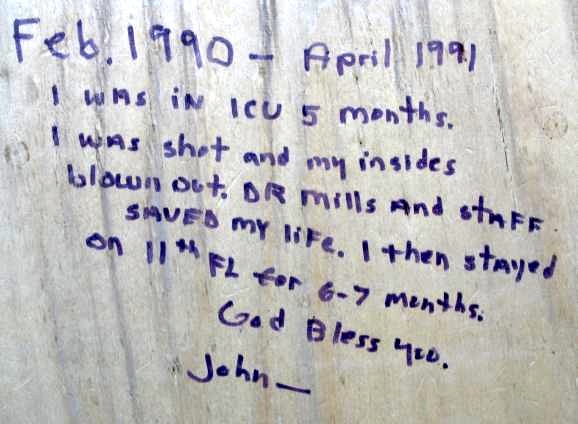 Feb. 1990 - April 1991
I was in ICU 5 months.
I was shot and my insides
blown out. DR Mills and staff
saved my life. I then stayed
on 11th FL for 6-7 months.
God Bless you.
John —